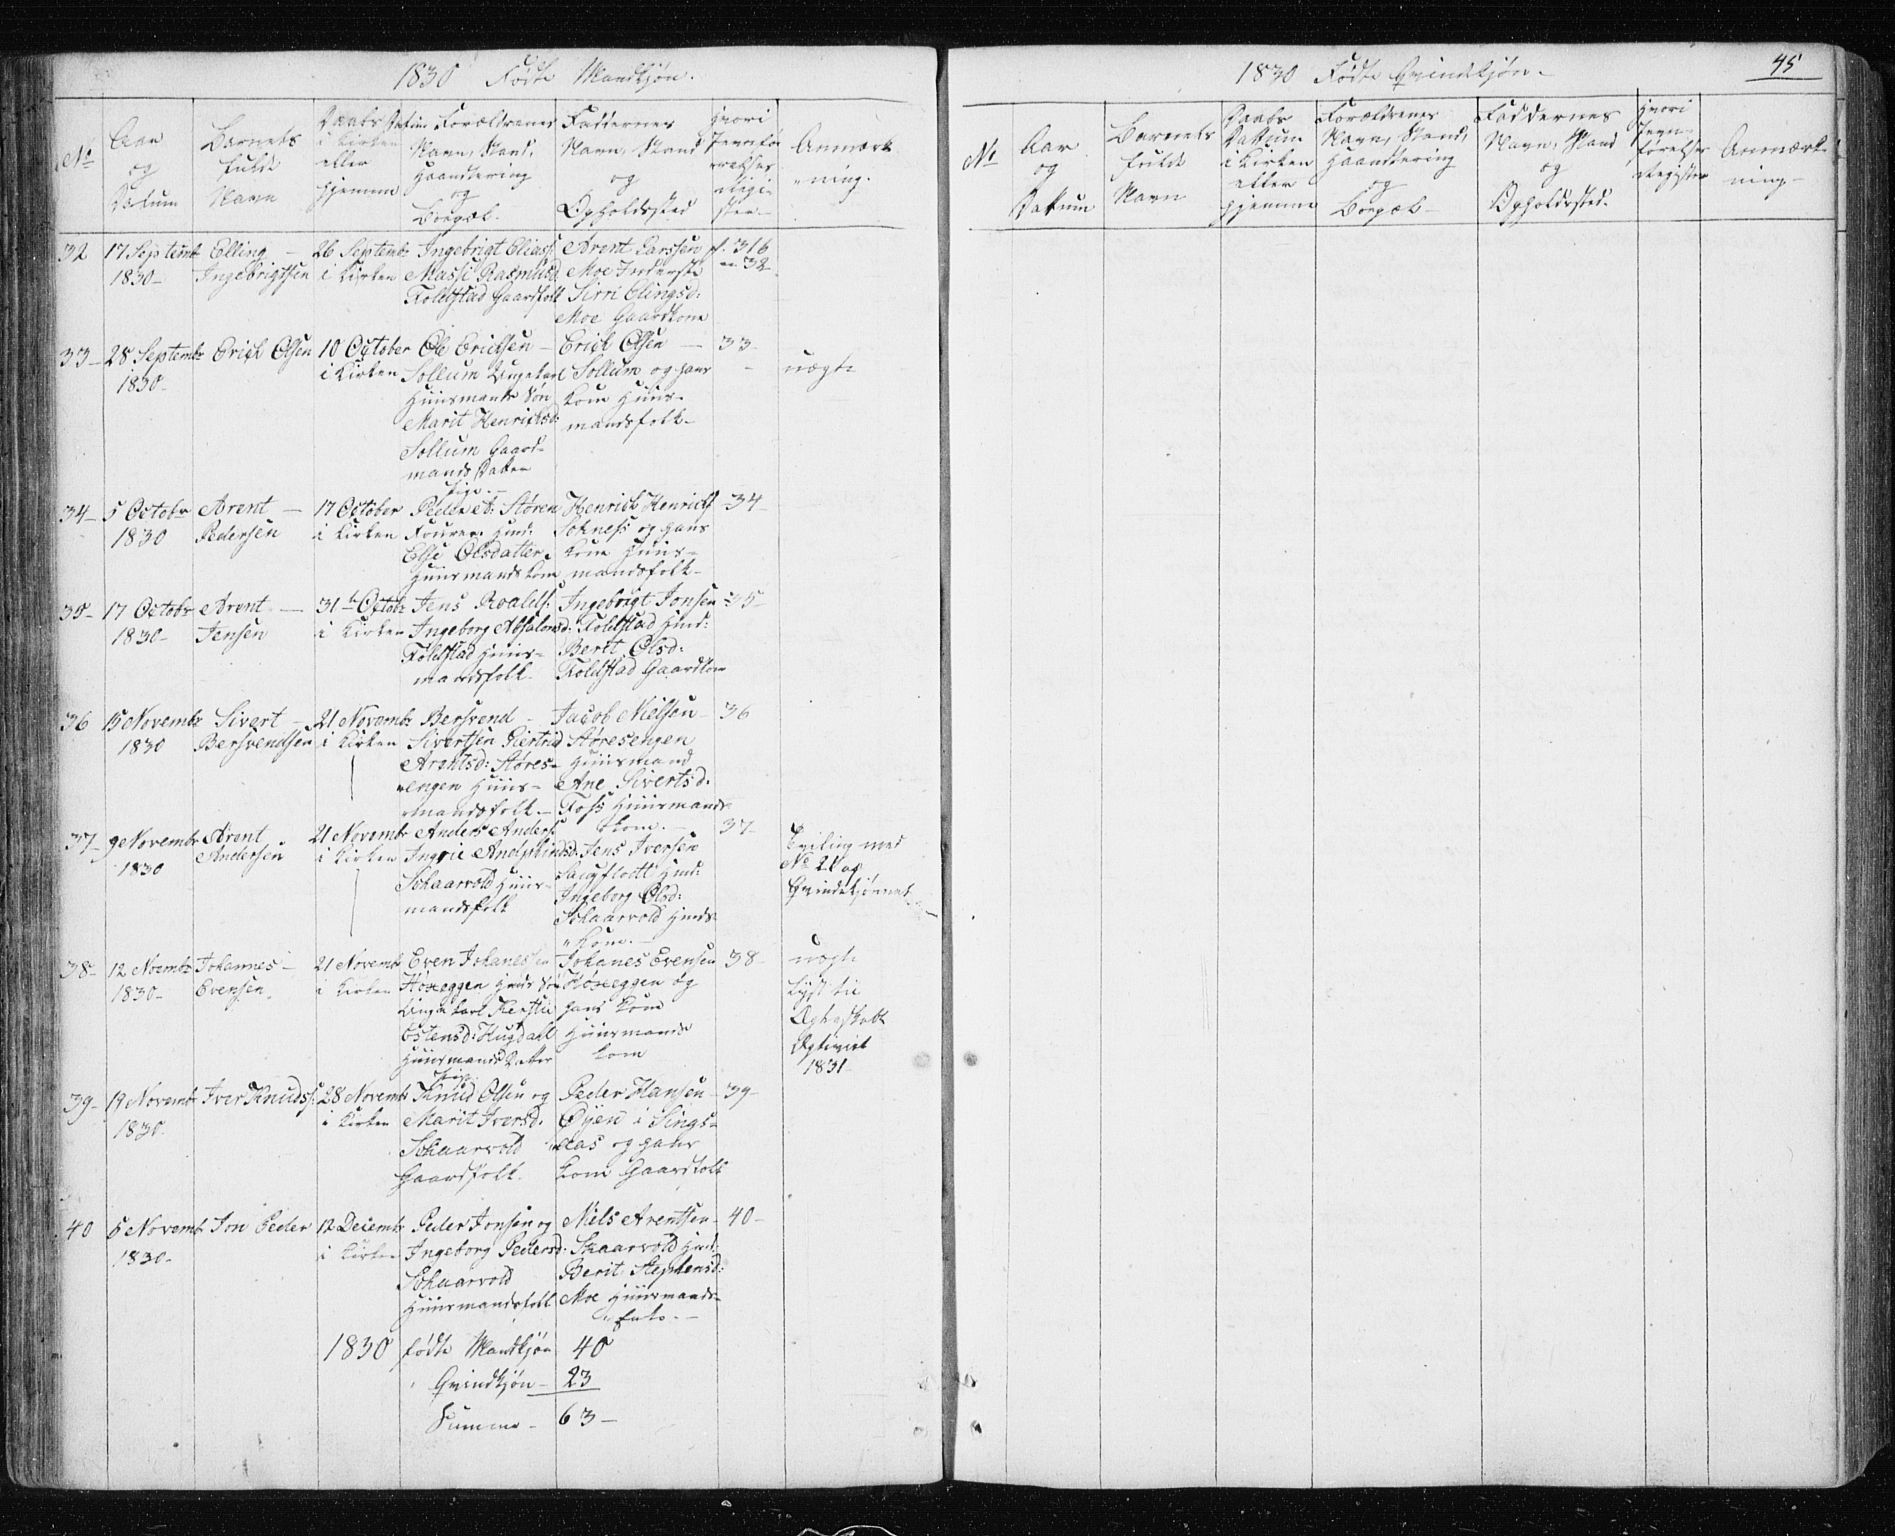 1830 Födte Mandkjön.
No
Aar
og
Datum
Barnets
fulde
Navn
Daabs Datum
i Kirken
eller
hjemme
Forældrenes
Navn, Stand,
Haandtering
og
Boepæl.
Faddernes
Navn, Stand
og
Opholdssted
Hvori
Jevnfø-
relses
Regi-
ster
Anmærk
ning.
32
17 Septembr
1830-
Elling
Ingebrigtsen
26 Septembr
i Kirken
Ingebrigt Eliass.
Massi Rasmusd
Foldstad Gaardfolk
Arent Larssen
Moe Inderste
Sirri Elingsd:
Moe Gaardkone
p. 316
no 32
33-
28 Septembr
1830-
Erich Olsen
10 October
i Kirken
Ole Erichsen -
Sollum Ungekarl
Huusmands Søn
Marit Henrichsd:
Sollum Gaard-
mands Datter
Pige.-
Erich Olsen
Sollum og hans
kone Huus-
mandsfolk-
33-
uægte
34-
5 Octobr
1830
Arent
Pedersen
17 October
i Kirken
Peder A: Støren
Fourer. Hmd:
Else Olsdatter
Huusmandskone
Henrick Henrichs
Sokness og hans
kone Huus-
mandsfolk-
34-
35-
17 Octobr
1830-
Arent
Jensen
31te Octobr
i Kirken
Jens Roalds:
Ingeborg Absalonsd:
Foldstad Huus-
mandsfolk
Ingebrigt Jonsen
Foldstad Hmd:
Berit Olsd:
Foldstad Gaardkone
35-
36
15 Novembr
1830
Sivert
Bersvendsen
21 Novembr
i Kirken
Bersvend -
Sivertsen Giertrud
Arentsd: Støres-
engen Huus-
mandsfolk-
Jacob Nielsen
Størsengen
Huusmand
Ane Sivertsd.
Foss Huusmands-
kone.-
36
37-
9 Novembr
1830
Arent
Andersen
21 Novembr
i Kirken
Anders Anders:
Ingrie
Schaarvold Huus-
mandsfolk
Jens Iversen
Hmd:
Ingeborg Olsd:
Schaarvold Hmds
kone.-
37-
Tviling med
No 21 af
Qvindekjønnet
38-
12 Noembr
1830-
Johannes-
Evensen
21 Novembr
i Kirken
Even Johanessen
Høseggen Hmds Søn
Ungekarl Kersti
Østensd: Hugdahl
Huusmands Datter
Pige
Johanes Evensen
Høseggen og
hans kone
Huusmands
kone
38-
uægte
Lyst til
Ægteskab
1831-
39-
19 Novembr
1830-
Iver Knuds:
28 Novembr
i Kirken
Knud Olsen og
Marit Iversd.
Schaarvold
Gaardfolk.
Peder Hansen
Øyen i Sings-
aas og hans
kone Gaardfolk
39-
40
5 Novembr
1830-
Jon Peder
12 Decembr
i Kirken
Peder Jonsen og
Ingeborg Pedersd:
Schaarvold
Huusmandsfolk
Niels Arentsen-
Skaarvold Hmd:
Berit Stephensd:
Moe Huusmands-
Enke.-
40-
1830 fødte Mandkjøn 40
Qvindkjøn- 23
Summa- 63-
45
1830 Födte Qvindekjön-
No
Aar
og
Datum
Barnets
fulde
Navn
Daabs
Datum
i Kirken
eller
hjemme
Forældrenes
Navn, Stand,
Haandtering
og
Boepæl-
Faddernes
Navn, Stand
og
Opholdssted.
Hvori
Jevn-
førelses
Register
Anmærk-
ning-